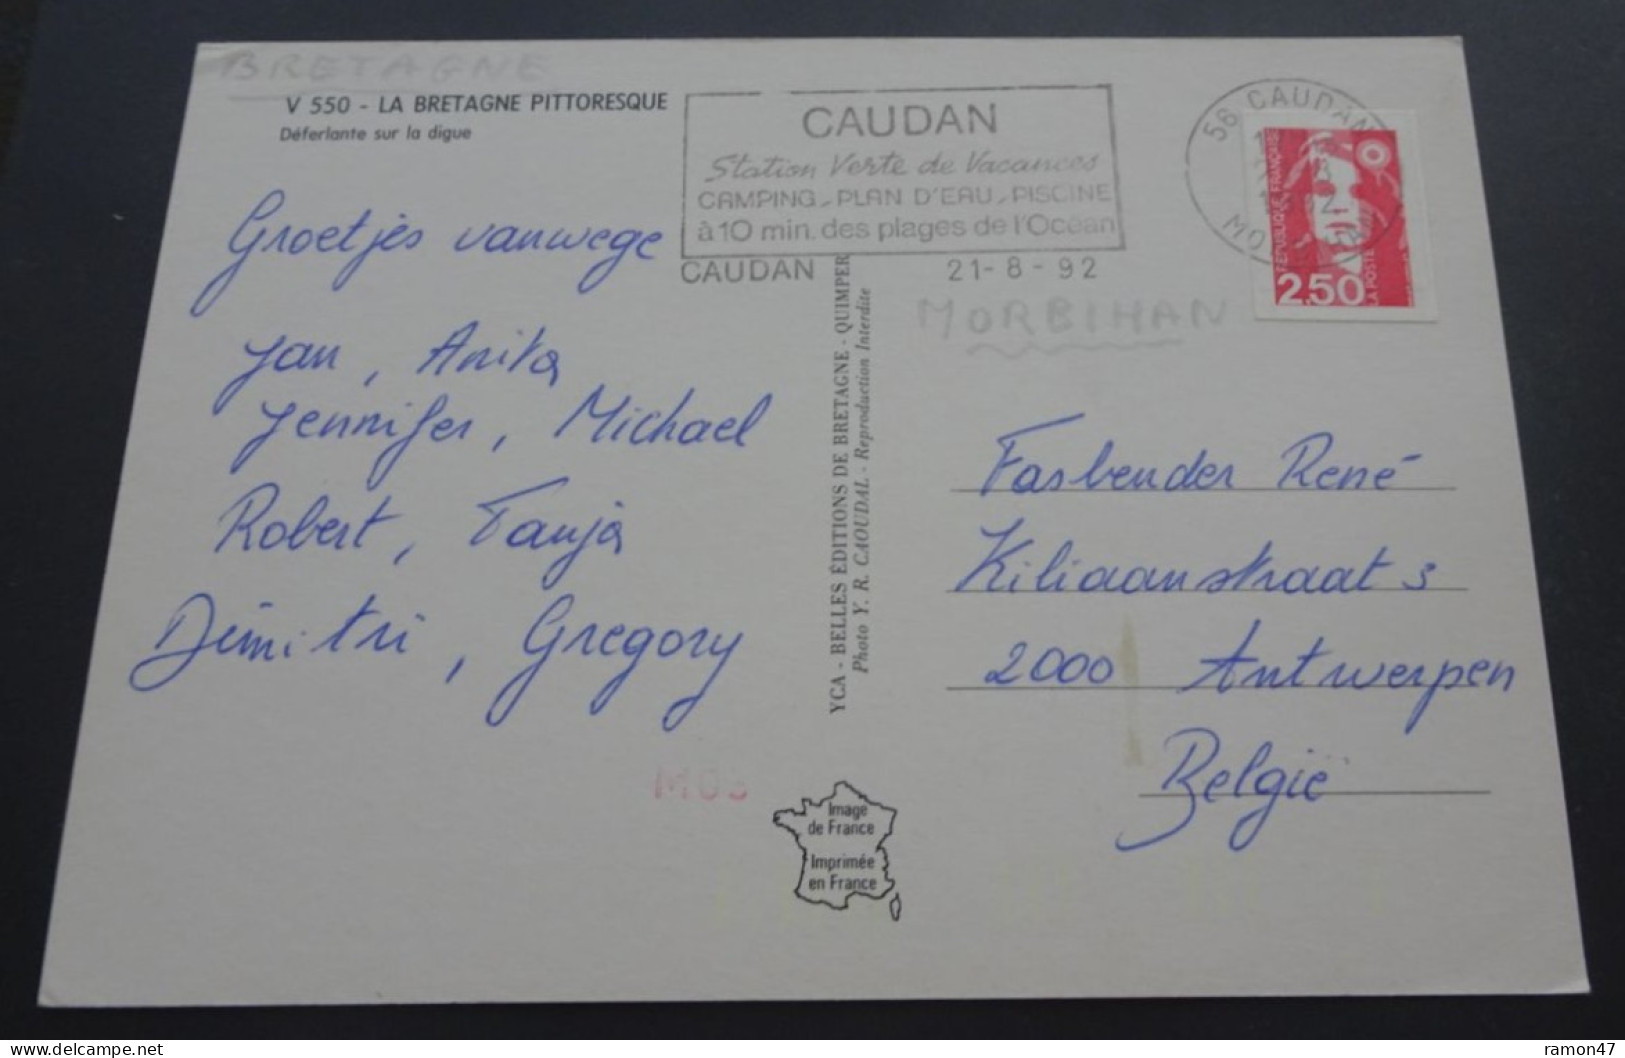 BRETAGNE
V 550 - LA BRETAGNE PITTORESQUE
Déferlante sur la digue
Groetjes vanwege
Jan, Anita
Jennifer, Michael
Robert, Tanja
Dimitri, Gregory
CAUDAN
Station Verte de Vacances
CAMPING-PLAN D'EAU-PISCINE
à 10 min. des plages de l'Océan
CAUDAN 21-8-92
56 CAUDAN
REPUBLIQUE FRANÇAISE
2,50
LA POSTE
MORBIHAN
YCA - BELLES ÉDITIONS DE BRETAGNE - QUIMPER
Photo Y. R. CAOUDAL - Reproduction Interdite
Fasbender René
Kiliaanstraat 3
2000 Antwerpen
België
Image
de France
Imprimée
en France
ramon47
delcampe.net